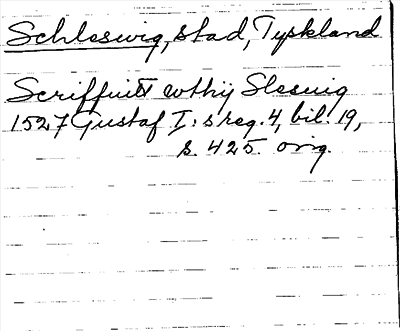 Schleswig, stad, Tyskland
Scriffuitt wthij Sleswig
1527 Gustaf I:s reg. 4, bil. 19,
s. 425. orig.